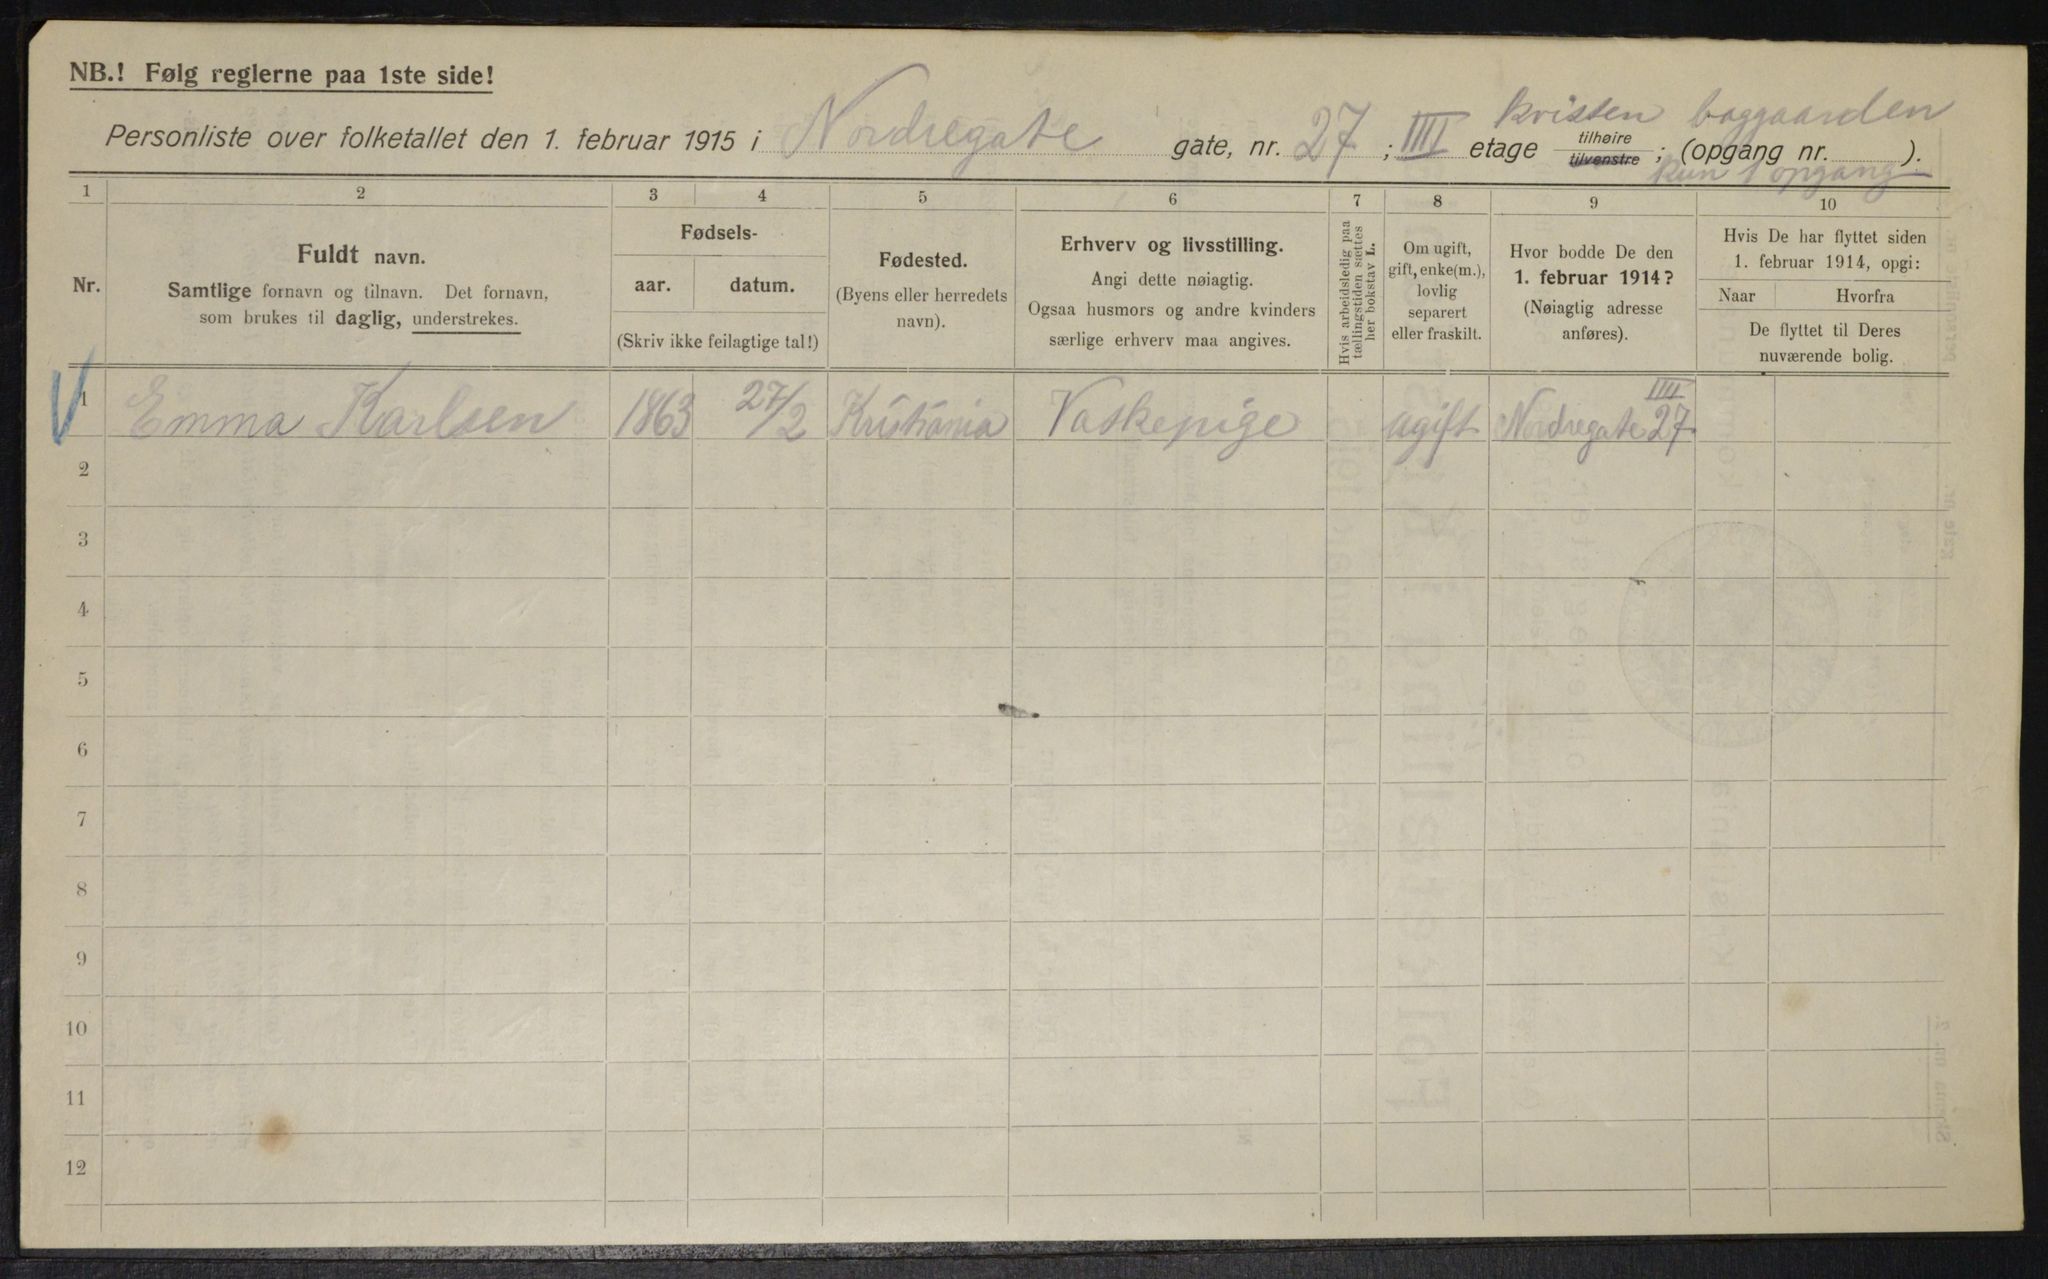 NB.! Følg reglerne paa 1ste side!
kvisten baggaarden
Personliste over folketallet den 1. februar 1915 i Nordregate gate, nr. 27 ; IIII etage tilhøire tilvenstre ; (opgang nr. ).
kun 1 opgang
1 2 3 4 5 6 7 8 9 10
Nr.
Fuldt navn.
Samtlige fornavn og tilnavn. Det fornavn,
som brukes til daglig, understrekes.
Fødsels-
aar. datum.
(Skriv ikke feilagtige tal!)
Fødested.
(Byens eller herredets
navn).
Erhverv og livsstilling.
Angi dette nøiagtig.
Ogsaa husmors og andre kvinders
særlige erhverv maa angives.
Hvis arbeidsledig paa
tællingstiden sættes
her bokstav L.
Om ugift,
gift, enke(m.),
lovlig
separert
eller fraskilt.
Hvor bodde De den
1. februar 1914?
(Nøiagtig adresse
anføres).
Hvis De har flyttet siden
1. februar 1914, opgi:
Naar Hvorfra
De flyttet til Deres
nuværende bolig.
1 Emma Karlsen 1863 27/2 Kristiania Vaskepige ugift Nordregate 27 IIII
2
3
4
5
6
7
8
9
10
11
12